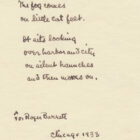 The fog comes
on little cat feet.
It sits looking
over harbor and city
on silent haunches
and then moves on.
For Roger Barrett
Chicago 1933